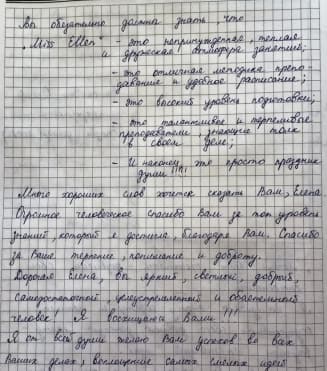 Вы обязательно должны знать что
"Miss Ellen" - это непринуждённая, теплая
и дружеская атмосфера занятий;
- это отличная методика препо-
давания и удобное расписание;
- это высокий уровень подготовки;
- это талантливые и терпеливые
преподаватели, знающие толк
в своем деле;
- И наконец, это просто праздник
души!!!!
Много хороших слов хочется сказать Вам, Елена
Огромное человеческое спасибо Вам за тот уровень
знаний, который я достигла, благодаря Вам. Спасибо
за Ваше терпение, понимание и доброту.
Дорогая Елена, вы яркий, светлый, добрый,
самодостаточный, целеустремленный и обаятельный
человек! Я восхищаюсь Вами!!!
Я от всей души желаю Вам успехов во всех
Ваших делах, воплощение самых смелых идей